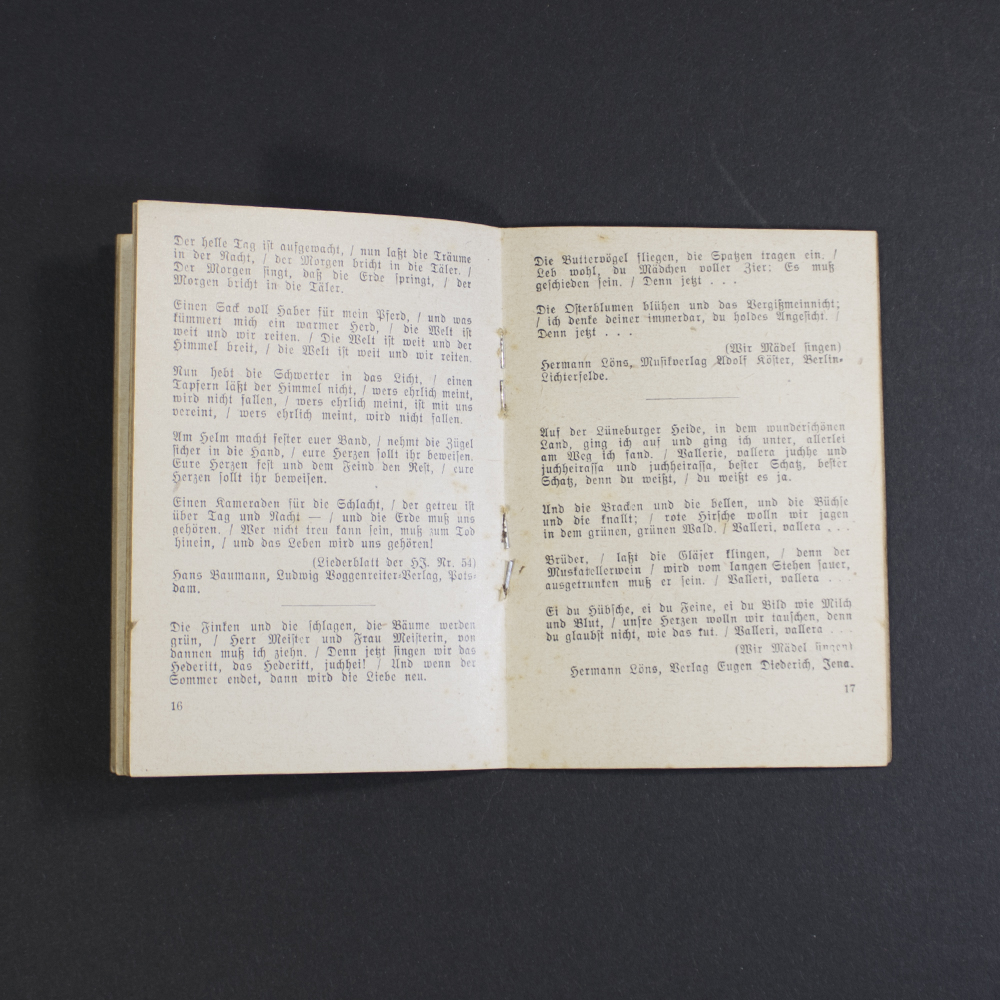 Der helle Tag ist aufgewacht, / nun laßt die Träume
in der Nacht, / der Morgen bricht in die Täler. /
Der Morgen singt, daß die Erde springt, / der
Morgen bricht in die Täler.
Einen Sack voll Haber für mein Pferd, / und was
kümmert mich ein warmer Herd, / die Welt ist
weit und wir reiten. / Die Welt ist weit und der
Himmel breit, / die Welt ist weit und wir reiten.
Nun hebt die Schwerter in das Licht, / einen
Tapfern läßt der Himmel nicht, / wers ehrlich meint,
wird nicht fallen, / wers ehrlich meint, ist mit uns
vereint, / wers ehrlich meint, wird nicht fallen.
Am Helm macht fester euer Band, / nehmt die Zügel
sicher in die Hand, / eure Herzen sollt ihr beweisen.
Eure Herzen fest und dem Feind den Rest, / eure
Herzen sollt ihr beweisen.
Einen Kameraden für die Schlacht, / der getreu ist
über Tag und Nacht — / und die Erde muß uns
gehören. / Wer nicht treu kann sein, muß zum Tod
hinein, / und das Leben wird uns gehören!
(Liederblatt der HJ. Nr. 54)
Hans Baumann, Ludwig Voggenreiter-Verlag, Pots-
dam.
Die Finken und die schlagen, die Bäume werden
grün, / Herr Meister und Frau Meisterin, von
dannen muß ich ziehn. / Denn jetzt singen wir das
Hederitt, das Hederitt, juchhei! / Und wenn der
Sommer endet, dann wird die Liebe neu.
16
Die Buttervögel fliegen, die Spatzen tragen ein. /
Leb wohl, du Mädchen voller Zier; Es muß
geschieden sein. / Denn jetzt . . .
Die Osterblumen blühen und das Vergißmeinnicht;
/ ich denke deiner immerdar, du holdes Angesicht. /
Denn jetzt . . .
(Wir Mädel singen)
Hermann Löns, Musikverlag Adolf Köster, Berlin-
Lichterfelde.
Auf der Lüneburger Heide, in dem wunderschönen
Land, ging ich auf und ging ich unter, allerlei
am Weg ich fand. / Vallerie, vallera juchhe und
juchheirassa und juchheirassa, bester Schatz, bester
Schatz, denn du weißt, / du weißt es ja.
Und die Bracken und die bellen, und die Büchse
und die knallt; / rote Hirsche wolln wir jagen
in dem grünen, grünen Wald. / Valleri, vallera . . .
Brüder, / laßt die Gläser klingen, / denn der
Muskatellerwein / wird vom langen Stehen sauer,
ausgetrunken muß er sein. / Valleri, vallera . . .
Ei du Hübsche, ei du Feine, ei du Bild wie Milch
und Blut, / unsre Herzen wolln wir tauschen, denn
du glaubst nicht, wie das tut. / Valleri, vallera . . .
(Wir Mädel singen)
Hermann Löns, Verlag Eugen Diederich, Jena.
17